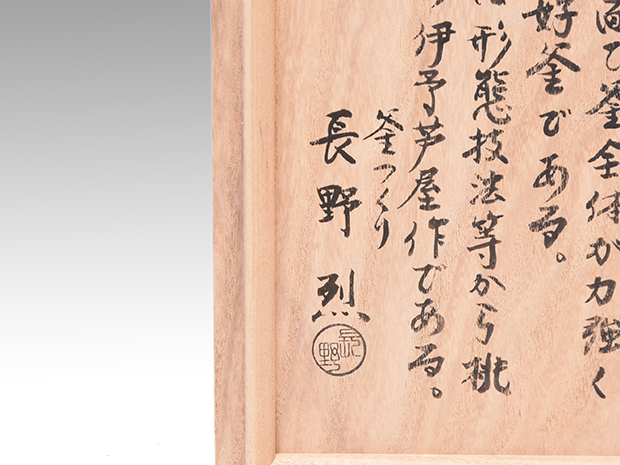 面ひ釜全体が力強く
好釜である。
形態技法等から桃
伊予芦屋作である。
釜つくり
長野烈
長野